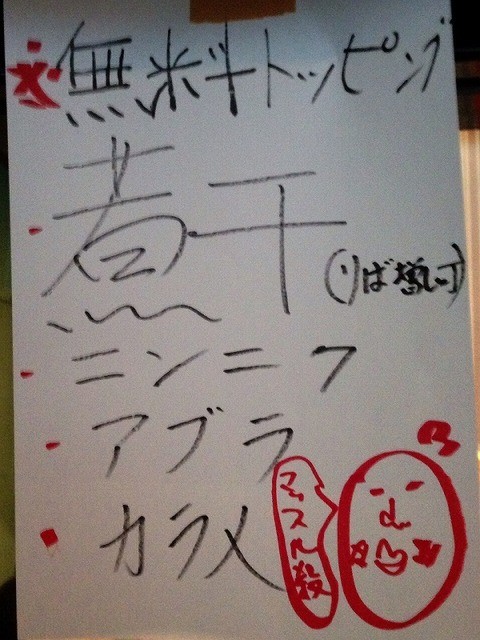 ※無料トッピング
・煮干
(りば増し可)
・ニンニク
・アブラ
・カラメ
マッスル殺